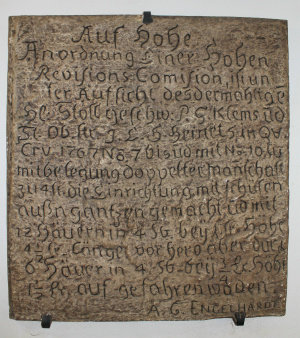 Auf Hohe
Anordnung Einer Hohen
Revisions Comision, ist un
ter Aufsicht des dermahlige
He. Stoll geschw. P. G. Klems ud
Ob. Str. J. L. H. Heinel S in Qv.
Cru. 1767 No. 7 bis ud mit No. 10
mit belegung doppelter manschaft
die Einrichtung mit schüsen
außn gantzen gemacht ud mit
12 Häuern in 4 St. bey Lr. Hohe
4 ½ Lr. Länge vorhero aber durch
6 Häuer in 4. St. beÿ ½ Lr. Hohe
1 ½ Lr. auf gefahren worden
A. G. ENGELHARDT